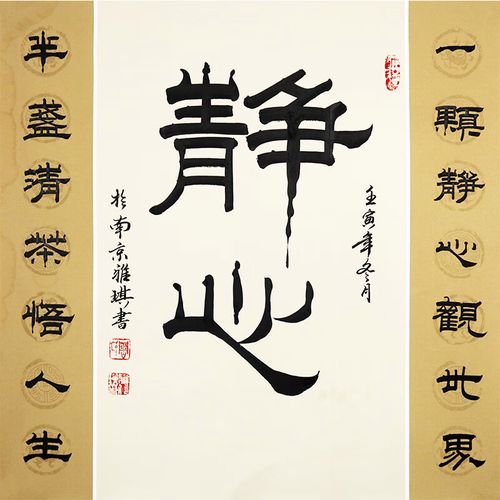 一顆靜心觀世界
靜心
壬寅年冬月
於南京雅琪書
半盞清茶悟人生